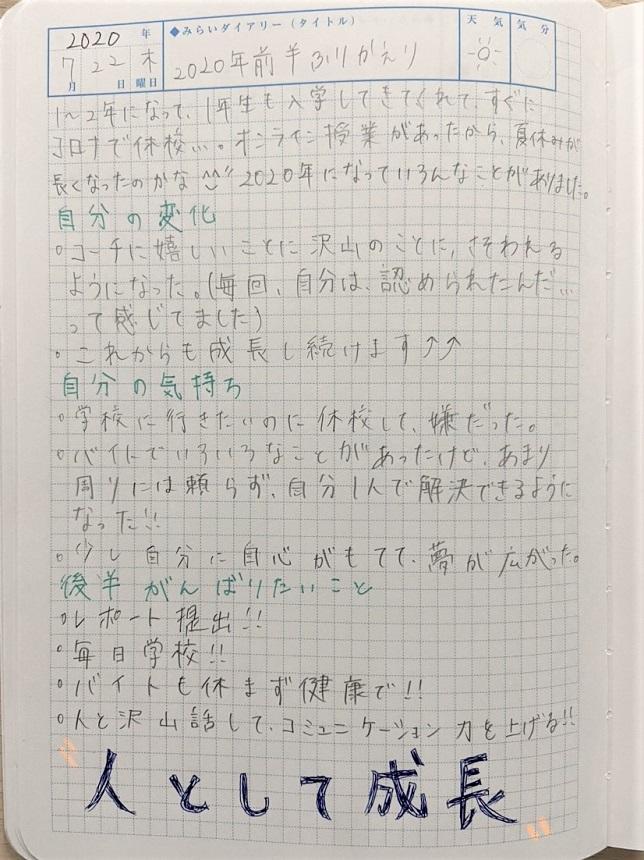 2020年
◆みらいダイアリー(タイトル)
天気 気分
7月22日木曜日
2020年前半ふりかえり
1〜2年になって、1年生も入学してきてくれて、すぐに
コロナで休校…。オンライン授業があったから、夏休みが
長くなったのかな 2020年になっていろんなことがありました。
自分の変化
○コーチに嬉しいことに沢山のことに、さそわれる
ようになった。(毎回、自分は、認められたんだ…
って感じてました)
○これからも成長し続けます↑↑
自分の気持ち
○学校に行きたいのに休校して、嫌だった。
○バイトでいろいろなことがあったけど、あまり
周りには頼らず、自分1人で解決できるように
なった!!
○少し自分に自心がもてて、夢が広がった。
後半がんばりたいこと
○レポート提出!!
○毎日学校!!
○バイトも休まず健康で!!
○人と沢山話して、コミュニケーション力を上げる!!
"人として成長"